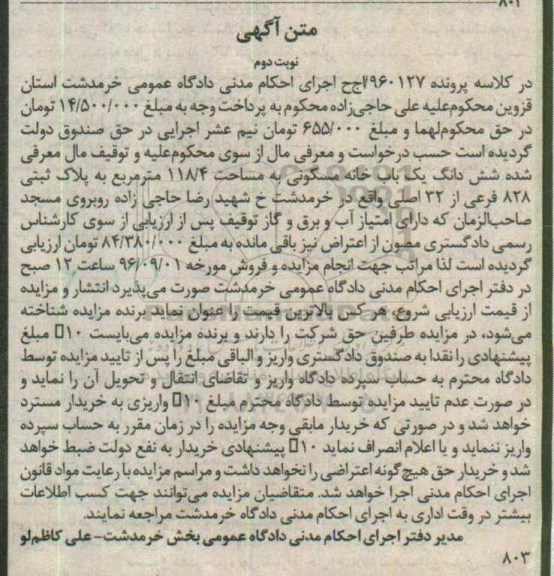 ۸۰۲
متن آگهی
نوبت دوم
در کلاسه پرونده ۹۶۰۱۲۷/اج‌ح اجرای احکام مدنی دادگاه عمومی خرمدشت استان
قزوین محکوم‌علیه علی حاجی‌زاده محکوم به پرداخت وجه به مبلغ ۱۴/۵۰۰/۰۰۰ تومان
در حق محکوم‌لهما و مبلغ ۶۵۵/۰۰۰ تومان نیم عشر اجرایی در حق صندوق دولت
گردیده است حسب درخواست و معرفی مال از سوی محکوم‌علیه و توقیف مال معرفی
شده شش دانگ یک باب خانه مسکونی به مساحت ۱۱۸/۴ مترمربع به پلاک ثبتی
۸۲۸ فرعی از ۳۲ اصلی واقع در خرمدشت خ شهید رضا حاجی زاده روبروی مسجد
صاحب‌الزمان که دارای امتیاز آب و برق و گاز توقیف پس از ارزیابی از سوی کارشناس
رسمی دادگستری مصون از اعتراض نیز باقی مانده به مبلغ ۸۴/۳۸۰/۰۰۰ تومان ارزیابی
گردیده است لذا مراتب جهت انجام مزایده و فروش مورخه ۹۶/۰۹/۰۱ ساعت ۱۲ صبح
در دفتر اجرای احکام مدنی دادگاه عمومی خرمدشت صورت می‌پذیرد انتشار و مزایده
از قیمت ارزیابی شروع، هر کس بالاترین قیمت را عنوان نماید برنده مزایده شناخته
می‌شود، در مزایده طرفین حق شرکت را دارند و برنده مزایده می‌بایست ۱۰▯ مبلغ
پیشنهادی را نقدا به صندوق دادگستری واریز و الباقی مبلغ را پس از تایید مزایده توسط
دادگاه محترم به حساب سپرده دادگاه واریز و تقاضای انتقال و تحویل آن را نماید و
در صورت عدم تایید مزایده توسط دادگاه محترم مبلغ ۱۰▯ واریزی به خریدار مسترد
خواهد شد و در صورتی که خریدار مابقی وجه مزایده را در زمان مقرر به حساب سپرده
واریز ننماید و یا اعلام انصراف نماید ۱۰▯ پیشنهادی خریدار به نفع دولت ضبط خواهد
شد و خریدار حق هیچ گونه اعتراضی را نخواهد داشت و مراسم مزایده با رعایت مواد قانون
اجرای احکام مدنی اجرا خواهد شد. متقاضیان مزایده می‌توانند جهت کسب اطلاعات
بیشتر در وقت اداری به اجرای احکام مدنی دادگاه خرمدشت مراجعه نمایند.
مدیر دفتر اجرای احکام مدنی دادگاه عمومی بخش خرمدشت- علی کاظم‌لو
۸۰۳